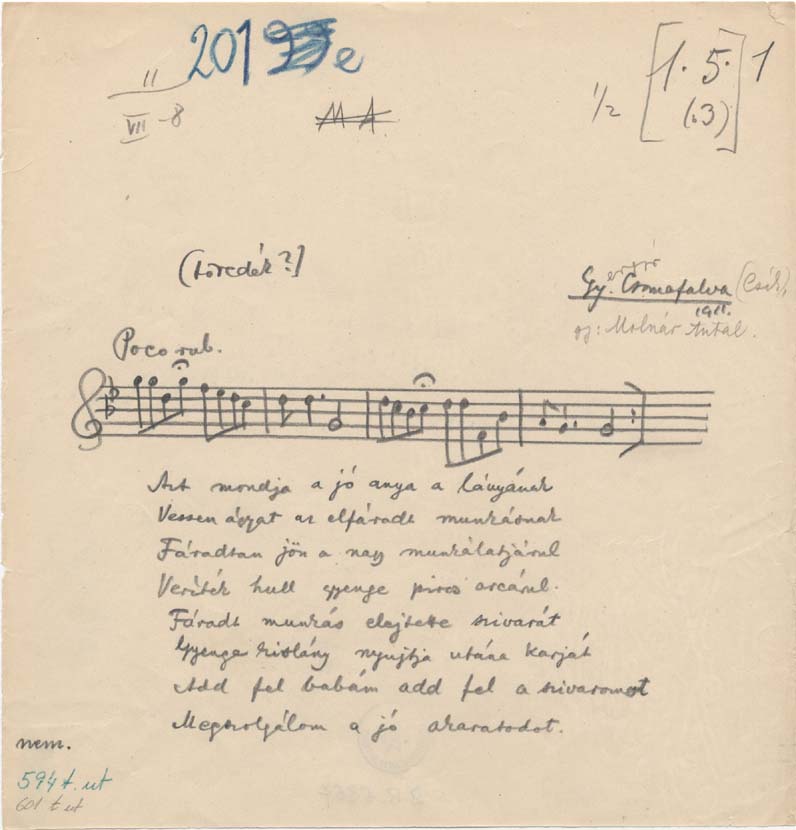 201 e
11
VII -8
M A.
1/2 [1. 5.] 1
(b3)
(töredék?]
Gy. ergyó Csomafalva (Csík),
1911.
gy: Molnár Antal.
Poco rub.
Azt mondja a jó anya a lányának
Vessen ágyat az elfáradt munkásnak
Fáradtan jön a nagy munkálatjárul
Veríték hull gyenge piros arcárul.
Fáradt munkás elejtette szivarát
Gyenge kislány nyujtja utána karját
Add fel babám add fel a szivaromot
Megszolgálom a jó akaratodot.
nem.
594 t. ut
601 t ut